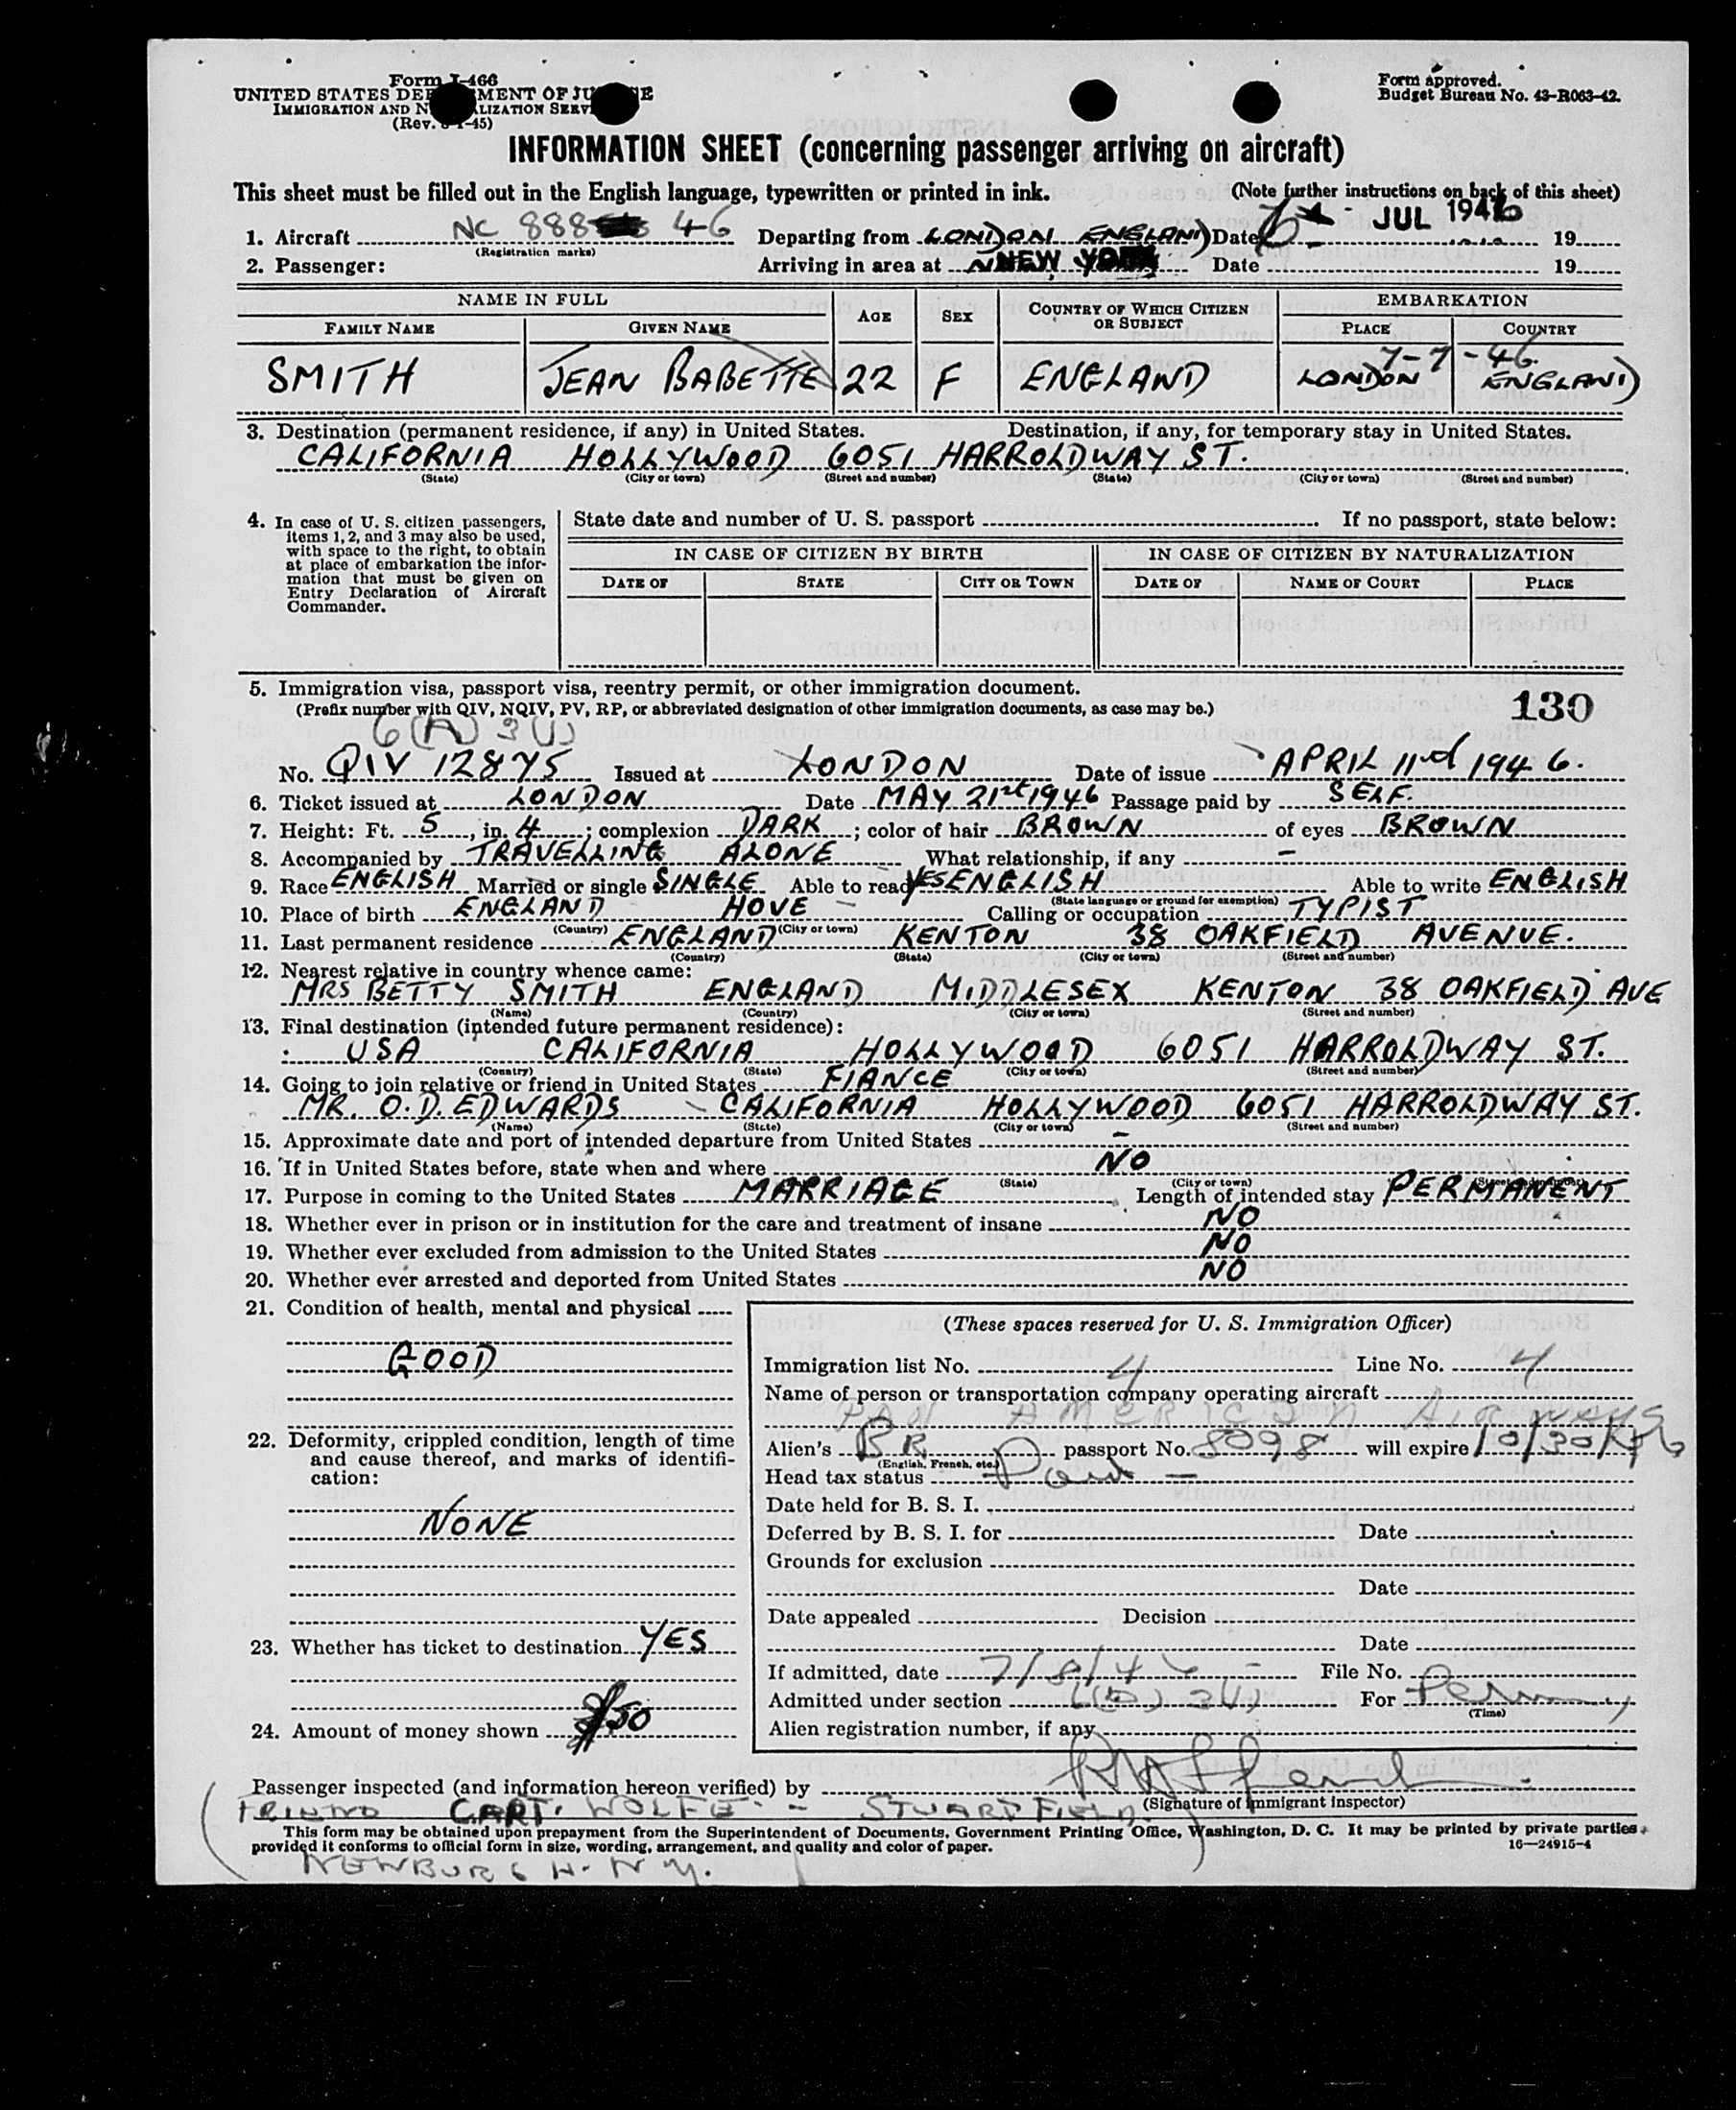 Form I-466
UNITED STATES DEPARTMENT OF JUSTICE
IMMIGRATION AND NATURALIZATION SERVICE
(Rev. -45)
Form approved.
Budget Bureau No. 43-R063-42.
INFORMATION SHEET (concerning passenger arriving on aircraft)
This sheet must be filled out in the English language, typewritten or printed in ink. (Note further instructions on back of this sheet)
1. Aircraft NC 888 46 Departing from LONDON ENGLAND Date JUL 1946 19
(Registration marks)
2. Passenger: Arriving in area at NEW YORK Date 19
NAME IN FULL AGE SEX COUNTRY OF WHICH CITIZEN OR SUBJECT EMBARKATION
FAMILY NAME GIVEN NAME PLACE COUNTRY
7-7-46
SMITH JEAN BABETTE 22 F ENGLAND LONDON ENGLAND
3. Destination (permanent residence, if any) in United States. Destination, if any, for temporary stay in United States.
CALIFORNIA HOLLYWOOD 6051 HARROLDWAY ST.
(State) (City or town) (Street and number) (State) (City or town) (Street and number)
4. In case of U. S. citizen passengers, items 1, 2, and 3 may also be used, with space to the right, to obtain at place of embarkation the information that must be given on Entry Declaration of Aircraft Commander.
State date and number of U. S. passport If no passport, state below:
IN CASE OF CITIZEN BY BIRTH IN CASE OF CITIZEN BY NATURALIZATION
DATE OF STATE CITY OR TOWN DATE OF NAME OF COURT PLACE
5. Immigration visa, passport visa, reentry permit, or other immigration document.
(Prefix number with QIV, NQIV, PV, RP, or abbreviated designation of other immigration documents, as case may be.) 130
6(A)3(1)
No. QIV 12875 Issued at LONDON Date of issue APRIL 11d 1946.
6. Ticket issued at LONDON Date MAY 21st 1946 Passage paid by SELF.
7. Height: Ft. 5, in. 4; complexion DARK; color of hair BROWN of eyes BROWN
8. Accompanied by TRAVELLING ALONE What relationship, if any -
9. Race ENGLISH Married or single SINGLE Able to read YES ENGLISH Able to write ENGLISH
(State language or ground for exemption)
10. Place of birth ENGLAND HOVE Calling or occupation TYPIST
(Country) (City or town)
11. Last permanent residence ENGLAND KENTON 38 OAKFIELD AVENUE.
(Country) (State) (City or town) (Street and number)
12. Nearest relative in country whence came:
MRS BETTY SMITH ENGLAND MIDDLESEX KENTON 38 OAKFIELD AVE
(Name) (Country) (City or town) (Street and number)
13. Final destination (intended future permanent residence):
USA CALIFORNIA HOLLYWOOD 6051 HARROLDWAY ST.
(Country) (State) (City or town) (Street and number)
14. Going to join relative or friend in United States FIANCE
MR. O.D. EDWARDS CALIFORNIA HOLLYWOOD 6051 HARROLDWAY ST.
(Name) (State) (City or town) (Street and number)
15. Approximate date and port of intended departure from United States -
16. If in United States before, state when and where NO
(State) (City or town) (Street and number)
17. Purpose in coming to the United States MARRIAGE Length of intended stay PERMANENT
18. Whether ever in prison or in institution for the care and treatment of insane NO
19. Whether ever excluded from admission to the United States NO
20. Whether ever arrested and deported from United States NO
21. Condition of health, mental and physical
GOOD
22. Deformity, crippled condition, length of time and cause thereof, and marks of identification:
NONE
23. Whether has ticket to destination YES
24. Amount of money shown $50
(These spaces reserved for U. S. Immigration Officer)
Immigration list No. 4 Line No. 4
Name of person or transportation company operating aircraft
PAN AMERICAN AIRWAYS
Alien's BR passport No. 8098 will expire 10/30/46
(English, French, etc.)
Head tax status Paid -
Date held for B. S. I.
Deferred by B. S. I. for Date
Grounds for exclusion
Date
Date appealed Decision
Date
If admitted, date 7/8/46 - File No.
Admitted under section 6(A)3(1) For Perm
(Time)
Alien registration number, if any
Passenger inspected (and information hereon verified) by
(Signature of Immigrant Inspector)
CAPT. WOLFE - STUART FIELD,
This form may be obtained upon prepayment from the Superintendent of Documents, Government Printing Office, Washington, D. C. It may be printed by private parties, provided it conforms to official form in size, wording, arrangement, and quality and color of paper. 16—24915-4
NEWBURGH. N.Y.